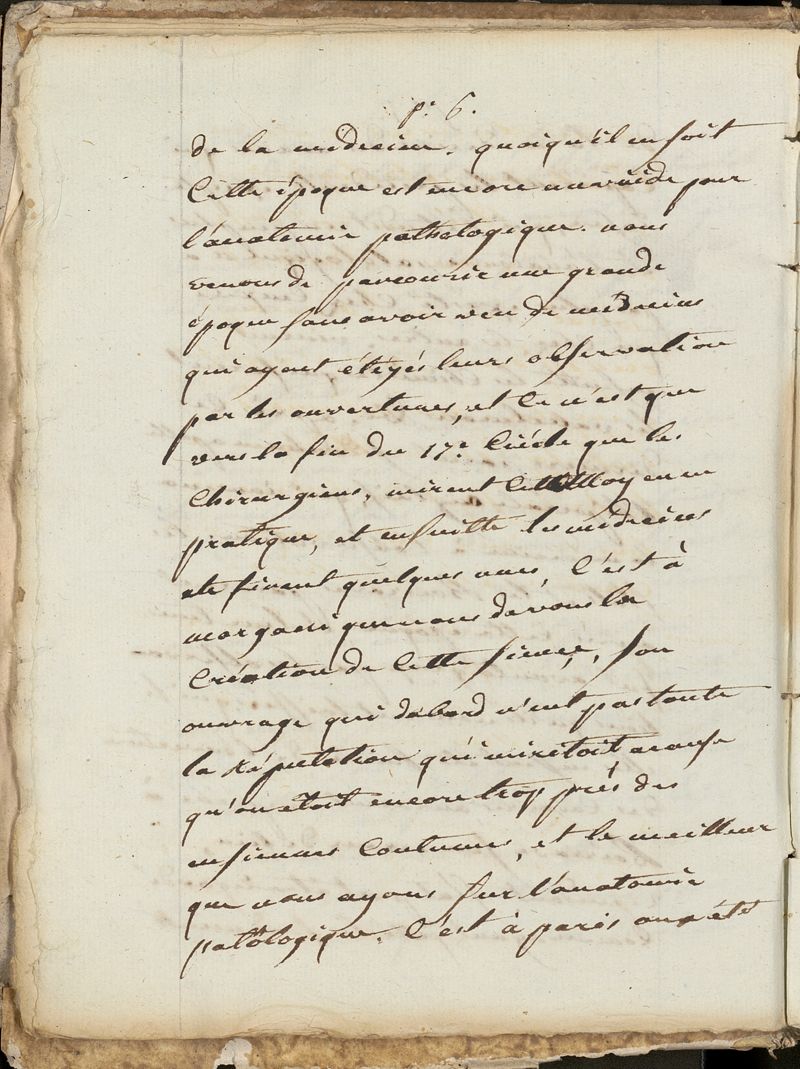 p. 6.
de la médecine. quoiqu'il en soit
Cette époque est encore un vuide pour
l'anatomie pathologique. nous
venons de parcourir une grande
époque sans avoir veu de médecins
qui ayent étéyés leurs observation
par les ouvertures, et ce n'est que
vers la fin du 17e Ciécle que les
Chirurgiens, mirent Ce Moyen en
pratique, et ensuitte les médecins
ete firent quelques unes, C'est à
morgani que nous devons la
Création de Cette sience, son
ouvrage qui dabord n'eut pas toute
la réputation qu'i miritoit acause
qu'on étoit encore trop près des
ensiennes Coutumes, et le meilleur
que nous ayons sur l'anatomie
patologique. C'est à paris on été